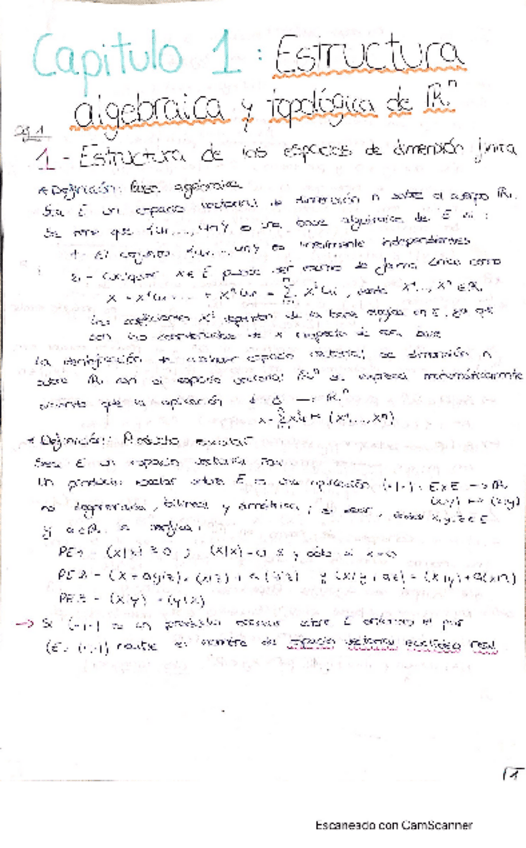 Capitulo 1: Estructura
algebraica y topológica de ℝⁿ
Pg 1
1 - Estructura de los espacios de dimensión finita
* Definición: Base algebraica
Sea E un espacio vectorial de dimensión n sobre el cuerpo ℝ.
Se dice que {u₁, ..., uₙ} es una base algebraica de E si:
1 - El conjunto {u₁, ..., uₙ} es linealmente independientes
2 - Cualquier x ∈ E puede ser escrito de forma única como
x = x¹u₁ + ... + xⁿuₙ = Σ xⁱuᵢ, donde x¹, ..., xⁿ ∈ ℝ.
Los coeficientes xⁱ dependen de la base en E, ya que
son las coordenadas de x respecto de esa base
La identificación de cualquier espacio vectorial de dimensión n
sobre ℝ con el espacio vectorial ℝⁿ se expresa matemáticamente
diciendo que la aplicación → ℝⁿ
x = Σ xⁱuᵢ ↦ (x¹, ..., xⁿ)
* Definición: Producto escalar
Sea E un espacio vectorial
Un producto escalar sobre E es una aplicación (·|·): E×E → ℝ
(x,y) ↦ (x|y)
no degenerada, bilineal y simétrica, es decir, x, y, z ∈ E
y a ∈ ℝ se verifica:
PE1 - (x|x) ≥ 0 ; (x|x) = 0 si y sólo si x = 0
PE2 - (x + ay|z) = (x|z) + a(y|z) y (x|y + az) = (x|y) + a(x|z)
PE3 - (x|y) = (y|x)
→ Si (·|·) es un producto escalar sobre E entonces el par
(E, (·|·)) recibe el nombre de espacio vectorial euclídeo real.
1
Escaneado con CamScanner